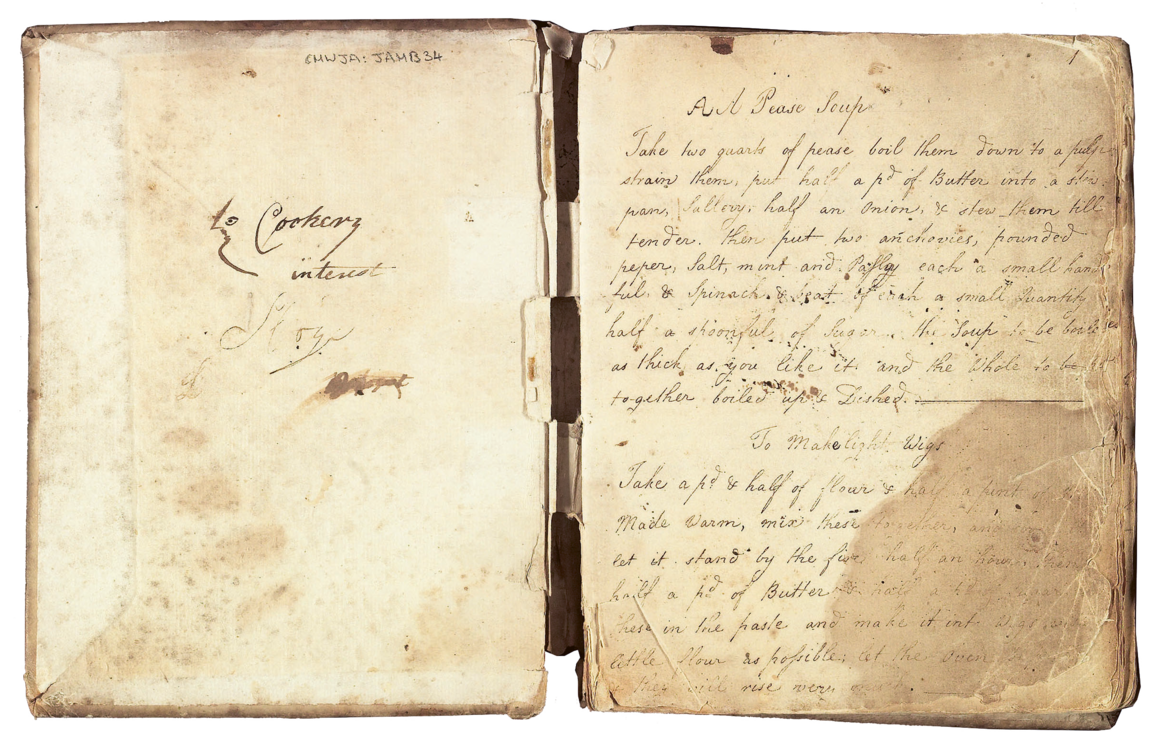 CHWJA: JAMB34
to Cookery
interest
1
A A Pease Soup
Take two quarts of pease boil them down to a pulp
strain them, put half a pd of Butter into a stew
pan, Sallery, half an Onion, & stew them till
tender. then put two anchovies, pounded
peper, Salt, mint and Pasly each a small hand
ful & Spinach & beat of each a small Quantity
half a spoonful of Sugar the Soup to be boiled
as thick as you like it and the Whole to be
together boiled up & Dished.
To Make light Wigs
Take a pd & half of flour & half a pint of
Made Warm, mix these together, and
let it stand by the fire half an hour then
half a pd of Butter & half a
these in the paste and make it int Wigs
little flour as possible, let the Oven
they will rise very